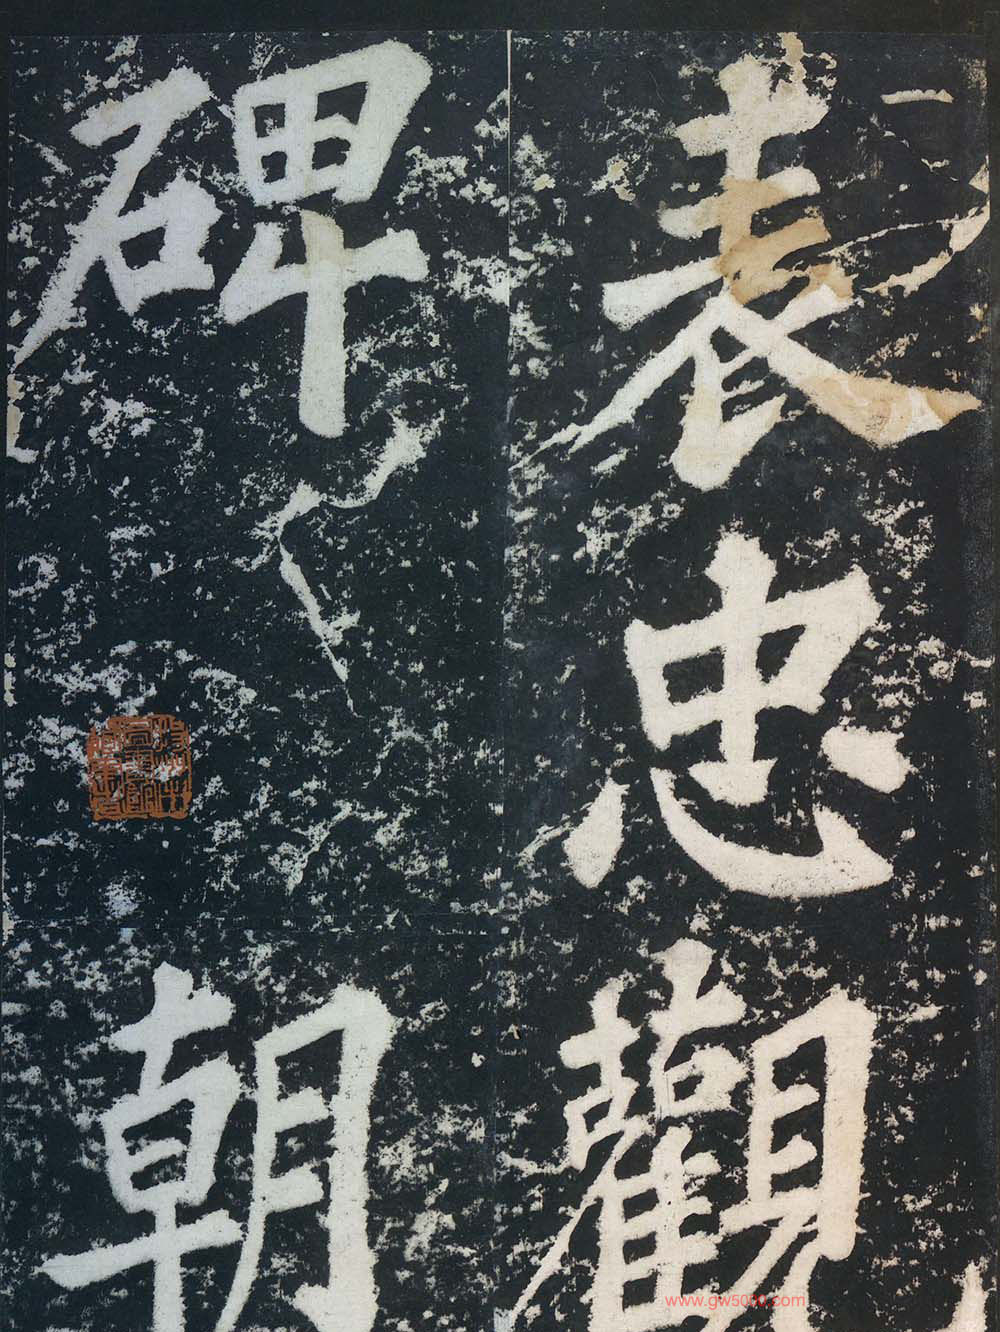 表忠觀
碑
朝
www.gw5000.com